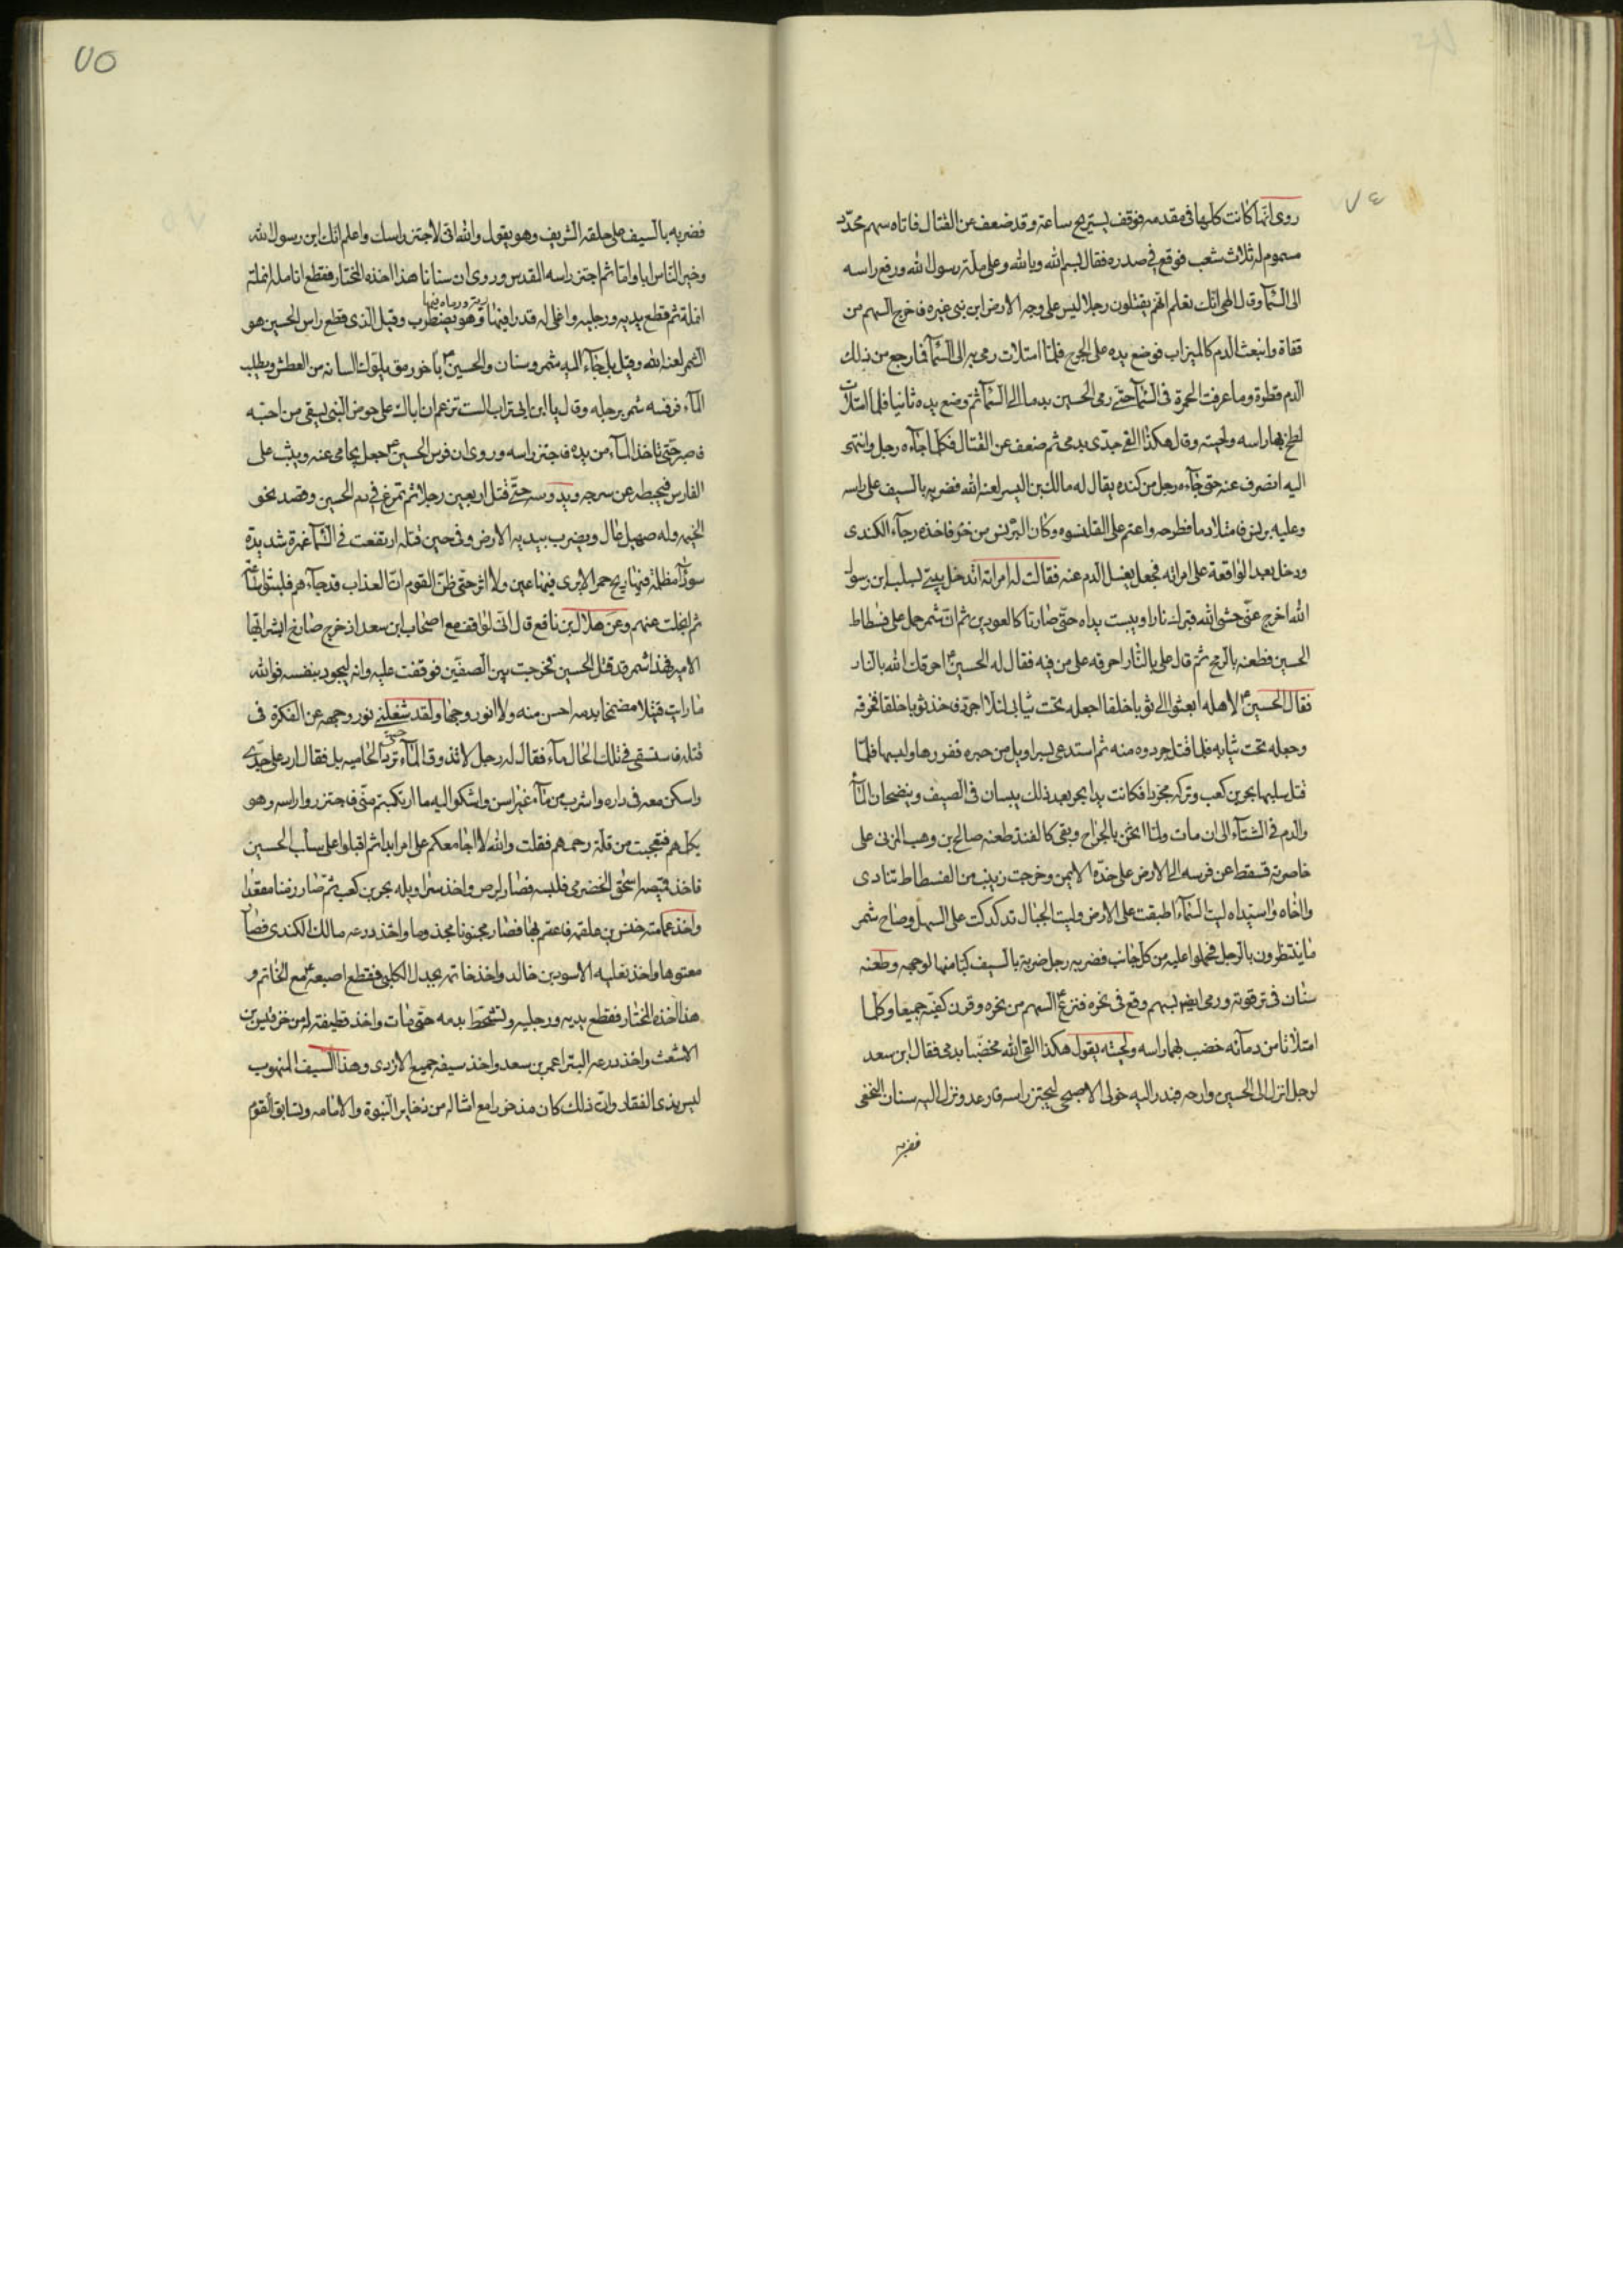 ٧٤
روى انها كانت كلها فى مقدمه فوقف يستريح ساعة وقد ضعف عن القتال فاتاه سهم محدّد
مسموم له ثلاث شعب فوقع فى صدره فقال بسم الله وبالله وعلى ملة رسول الله ورفع راسه
الى السمآء وقال الهى انك تعلم انهم يقتلون رجلا ليس على وجه الارض ابن نبى غيره فاخرج السهم من
قفاه وانبعث الدم كالميزاب فوضع يده على الجرح فلما امتلات رمى به الى السمآء فما رجع من ذلك
الدم قطرة وما عرفت الحمرة فى السمآء حتى رمى الحسين بدمه الى السمآء ثم وضع يده ثانيا فلما امتلات
لطخ بها راسه ولحيته وقال هكذا القى جدّى بدمى ثم ضعف عن القتال فكلما جآءه رجل وانتهى
اليه انصرف عنه حتى جآءه رجل من كنده يقال له مالك بن اليسر لعنه الله فضربه بالسيف على راسه
وعليه برنس فامتلا دما فطرحه واعتم على القلنسوه وكان البرنس من خز فاخذه رجآء الكندى
ودخل بعد الواقعة على امراته فجعل يغسل الدم عنه فقالت له امراته اتدخل بيتى بسلب ابن رسول
الله اخرج عنى حشى الله قبرك نارا ويبست يداه حتى صارتا كالعودين ثم ان شمر حمل على فسطاط
الحسين فطعنه بالرمح ثم قال على بالنار احرقه على من فيه فقال له الحسين ع احرقك الله بالنار
فقال الحسين ع لاهله ابعثوا الى ثوبا خلقا اجعله تحت ثيابى لئلا اجرد فاخذ ثوبا خلقا فخرقه
وجعله تحت ثيابه فلما قتل جردوه منه ثم استدعى بسراويل من حبره ففزرها ولبسها فلما
قتل سلبها بحر بن كعب وتركه مجردا فكانت يدا بحر بعد ذلك ييبسان فى الصيف وينضحان المآء
والدم فى الشتآء الى ان مات ولما اثخن بالجراح وبقى كالقنفذ طعنه صالح بن وهب المزنى على
خاصرته فسقط عن فرسه الى الارض على خدّه الايمن وخرجت زينب من الفسطاط تنادى
وااخاه واسيداه ليت السمآء اطبقت على الارض وليت الجبال تدكدكت على السهل وصاح شمر
ما ينتظرون بالرجل فحملوا عليه من كل جانب فضربه رجل ضربة بالسيف كبا منها لوجهه وطعنه
سنان فى ترقوته ورمى ايضا بسهم وقع فى نحره فنزع ع السهم من نحره وقرن كفيه جميعا وكلما
امتلاتا من دمآئه خضب بهما راسه ولحيته يقول هكذا القى الله مخضبا بدمى فقال ابن سعد
لرجل انزل الى الحسين وارحه فبدر اليه خولى الاصبحى ليجتز راسه فارعد ونزل اليه سنان النخعى
فضربه
٧٥
فضربه بالسيف على حلقه الشريف وهو يقول والله انى لاجتز راسك واعلم انك ابن رسول الله
وخير الناس ابا واما ثم اجتز راسه المقدس وروى ان سنانا هذا اخذه المختار فقطع انامله انملة
انملة ثم قطع يديه ورجليه واغلى له قدرا فيها زيت ورماه فيها وهو يضطرب وقيل الذى قطع راس الحسين هو
الشمر لعنه الله وقيل بل جآء اليه شمر وسنان والحسين ع باخر رمق يلوك لسانه من العطش ويطلب
المآء فرفسه شمر برجله وقال يا ابن ابى تراب الست تزعم ان اباك على حوض النبى يسقى من احبه
فاصبر حتى تاخذ المآء من يده فاجتز راسه وروى ان فرس الحسين ع جعل يحامى عنه ويثب على
الفارس فيخبطه عن سرجه ويدوسه حتى قتل اربعين رجلا ثم تمرغ فى دم الحسين وقصد نحو
الخيمه وله صهيل عال ويضرب بيديه الارض وفى حين قتله ارتفعت فى السمآء غبرة شديدة
سودآء مظلمة فيها ريح حمرا لا يرى فيها عين ولا اثر حتى ظن القوم ان العذاب قد جآءهم فلبثوا ساعة
ثم انجلت عنهم وعن هلال بن نافع قال انى لواقف مع اصحاب ابن سعد اذ خرج صارخ ابشر ايها
الامير فهذا شمر قد قتل الحسين فخرجت بين الصفين فوقفت عليه وانه ليجود بنفسه فوالله
ما رايت قتيلا مضمخا بدمه احسن منه ولا انور وجها ولقد شغلنى نور وجهه عن الفكرة فى
قتله فاستسقى فى تلك الحال مآء فقال له رجل لا تذوق المآء حتى ترد الحاميه بل فقال ارد على جدّى
واسكن معه فى داره واشرب من مآء غير اسن واشكوا اليه ما ارتكبتم منى فاجتزوا راسه وهو
يكلمهم فتعجبت من قلة رحمهم فقلت والله لا اجامعكم على امر ابدا ثم اقبلوا على سلب الحسين
فاخذ قميصه اسحق الحضرمى فلبسه فصار ابرص واخذ سراويله بحر بن كعب ثم صار زمنا مقعدا
واخذ عمامته خنس بن علقمه فاعتم بها فصار مجنونا مجذوما واخذ درعه مالك الكندى فصار
معتوها واخذ نعليه الاسود بن خالد واخذ خاتمه بجدل الكلبى فقطع اصبعه ع مع الخاتم و
هذا اخذه المختار فقطع يديه ورجليه وتشحّط بدمه حتى مات واخذ قطيفة له من خز قيس بن
الاشعث واخذ درعه البترا عمر بن سعد واخذ سيفه جميع الازدى وهذا السيف المنهوب
ليس بذى الفقار وان ذلك كان مذخورا مع امثاله من ذخاير النبوة والامامه وتسابق القوم